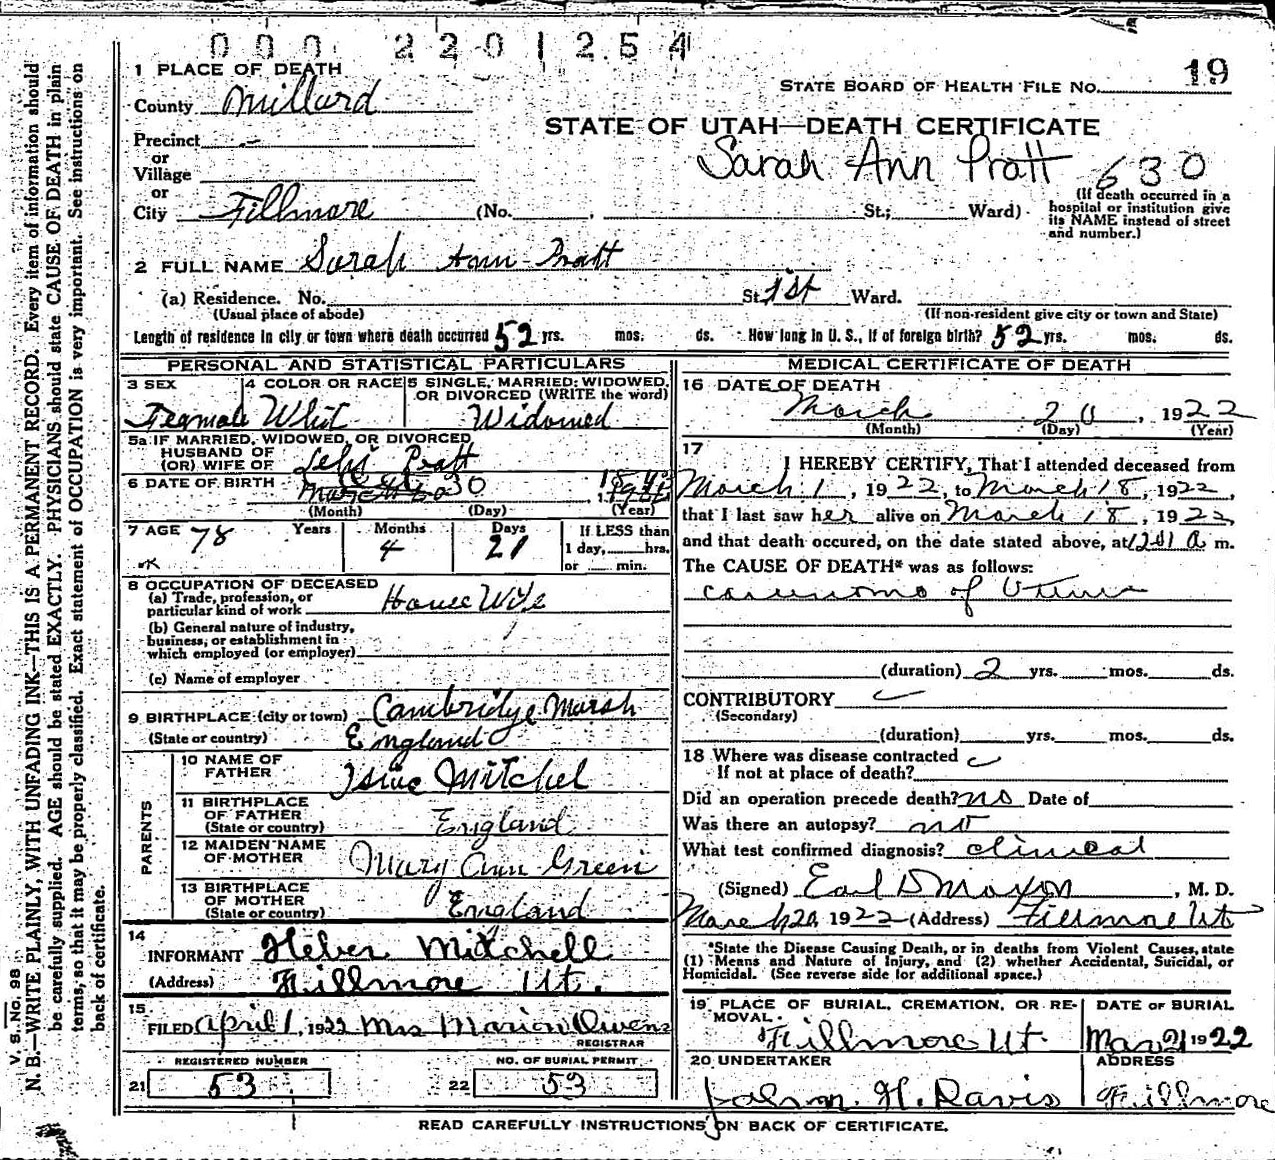 000 2201254
1 PLACE OF DEATH
STATE BOARD OF HEALTH FILE NO. 19
County Millard
STATE OF UTAH—DEATH CERTIFICATE
Precinct
or
Village
Sarah Ann Pratt 630
or
City Fillmore (No. , St.; Ward)
(If death occurred in a
hospital or institution give
its NAME instead of street
and number.)
2 FULL NAME Sarah Ann Pratt
(a) Residence. No. St. 1st Ward.
(Usual place of abode) (If non-resident give city or town and State)
Length of residence in city or town where death occurred 52 yrs. mos. ds. How long in U. S., if of foreign birth? 52 yrs. mos. ds.
PERSONAL AND STATISTICAL PARTICULARS
3 SEX 4 COLOR OR RACE 5 SINGLE, MARRIED, WIDOWED,
OR DIVORCED (WRITE the word)
Feamale Whit Widowed
5a IF MARRIED, WIDOWED, OR DIVORCED
HUSBAND OF
(OR) WIFE OF Lehi Pratt
6 DATE OF BIRTH 30
(Month) (Day) (Year)
7 AGE 78 Years Months 4 Days 21 If LESS than
1 day, hrs.
or min.
8 OCCUPATION OF DECEASED
(a) Trade, profession, or
particular kind of work House Wife
(b) General nature of industry,
business, or establishment in
which employed (or employer)
(c) Name of employer
9 BIRTHPLACE (city or town) Cambridge Marsh
(State or country) England
PARENTS
10 NAME OF
FATHER Isaac Mitchel
11 BIRTHPLACE
OF FATHER
(State or country) England
12 MAIDEN NAME
OF MOTHER Mary Ann Green
13 BIRTHPLACE
OF MOTHER
(State or country) England
14
INFORMANT Heber Mitchell
(Address) Fillmore Ut.
15
FILED April 1, 1922 Mrs Marion Owens
REGISTRAR
REGISTERED NUMBER NO. OF BURIAL PERMIT
21 53 22 53
MEDICAL CERTIFICATE OF DEATH
16 DATE OF DEATH
March 20, 1922
(Month) (Day) (Year)
17
I HEREBY CERTIFY, That I attended deceased from
March 1, 1922, to March 18, 1922,
that I last saw her alive on March 18, 1922,
and that death occured, on the date stated above, at 1201 a m.
The CAUSE OF DEATH* was as follows:
carcinoma of Uterus
(duration) 2 yrs. mos. ds.
CONTRIBUTORY
(Secondary)
(duration) yrs. mos. ds.
18 Where was disease contracted
If not at place of death?
Did an operation precede death? no Date of
Was there an autopsy? no
What test confirmed diagnosis? clinical
(Signed) Earl D Maxon, M. D.
March 20, 1922 (Address) Fillmore Ut
*State the Disease Causing Death, or in deaths from Violent Causes, state
(1) Means and Nature of Injury, and (2) whether Accidental, Suicidal, or
Homicidal. (See reverse side for additional space.)
19 PLACE OF BURIAL, CREMATION, OR RE-
MOVAL. DATE OF BURIAL
Fillmore Ut. Mar 21 1922
20 UNDERTAKER ADDRESS
H. Davis Fillmore
READ CAREFULLY INSTRUCTIONS ON BACK OF CERTIFICATE.
V. S. No. 98
N. B.—WRITE PLAINLY, WITH UNFADING INK—THIS IS A PERMANENT RECORD. Every item of information should
be carefully supplied. AGE should be stated EXACTLY. PHYSICIANS should state CAUSE OF DEATH in plain
terms, so that it may be properly classified. Exact statement of OCCUPATION is very important. See instructions on
back of certificate.